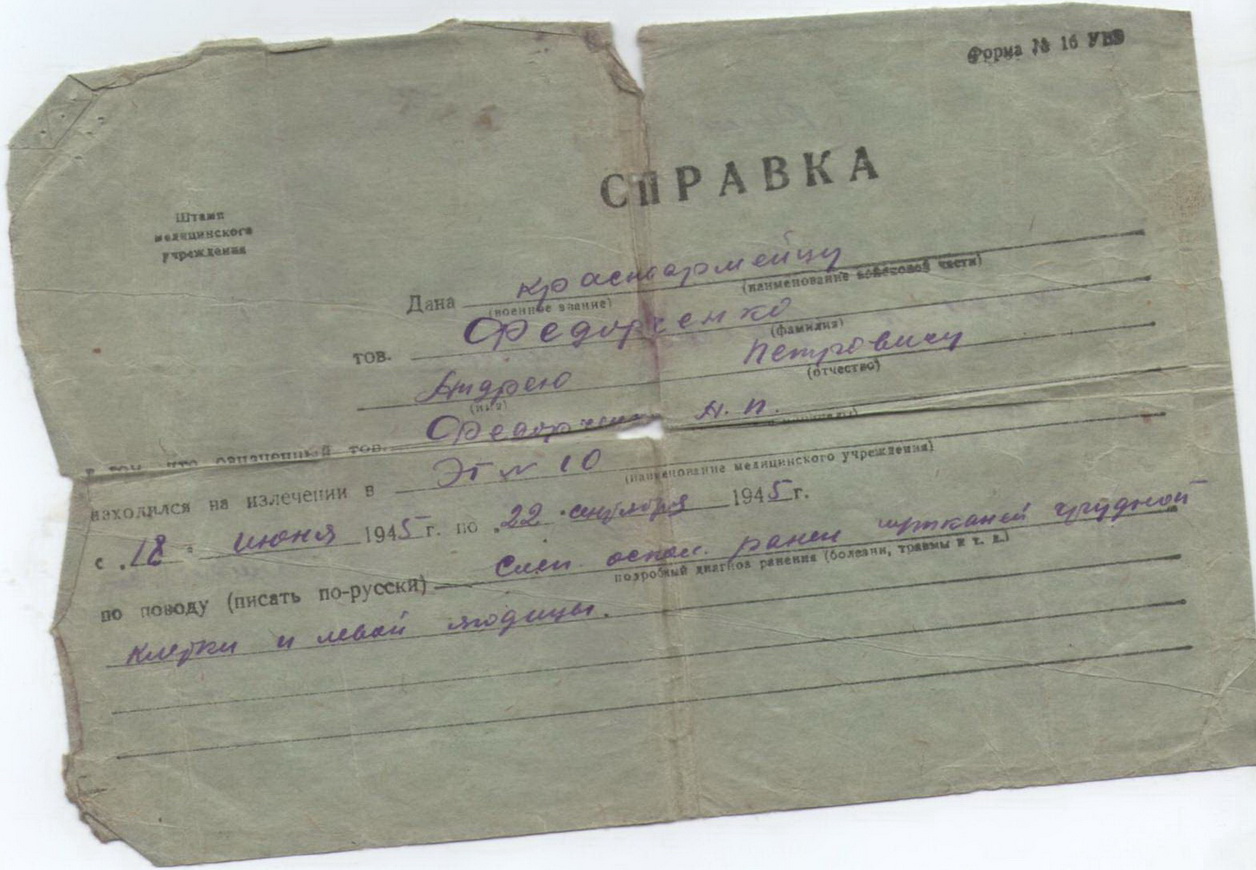 Форма № 16 УВЭ
СПРАВКА
Штамп
медицинского
учреждения
Дана красноармейцу
(военное звание) (наименование войсковой части)
тов. Федорченко
(фамилия)
Андрею Петровичу
(имя) (отчество)
в том, что означенный тов. Федорченко А. П.
находился на излечении в ЭГ № 10
(наименование медицинского учреждения)
с „18 " июня 1945 г. по „22 " сентября 1945 г.
по поводу (писать по-русски) Слеп. оскол. ранен грудной
подробный диагноз ранения (болезни, травмы и т. д.)
клетки и левой ягодицы.